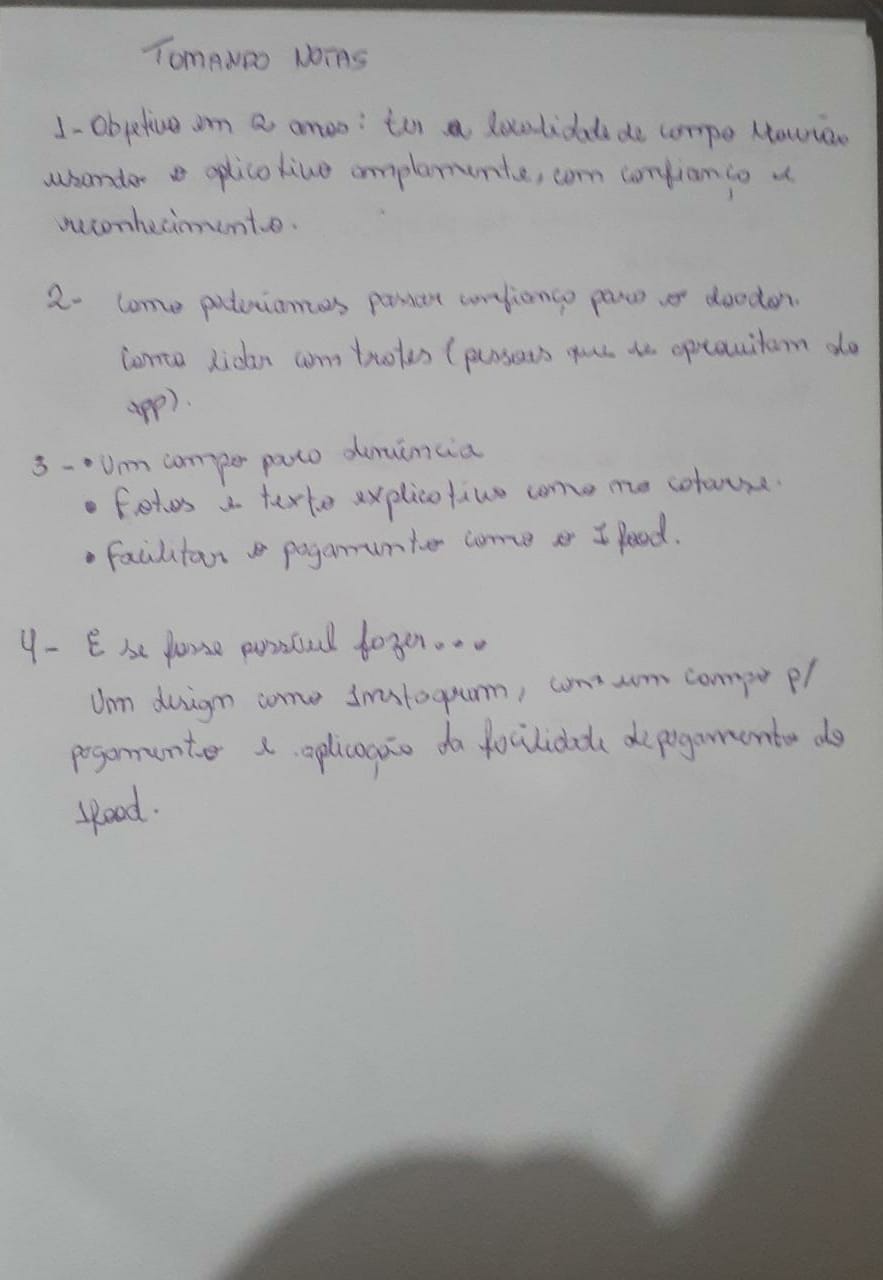 TOMANDO NOTAS
1- Objetivo em 2 anos: ter a localidade de campo Mourão
usando o aplicativo amplamente, com confiança e
reconhecimento.
2- Como poderiamos passar confiança para o doador.
Como lidar com trotes (pessoas que se aproveitam do
app).
3 - • Um campo para denúncia
• Fotos e texto explicativo como no catarse.
• Facilitar o pagamento como o Ifood.
4- E se fosse possível fazer...
Um design como Instagram, com um campo p/
pagamento e aplicação da facilidade de pagamento do
Ifood.